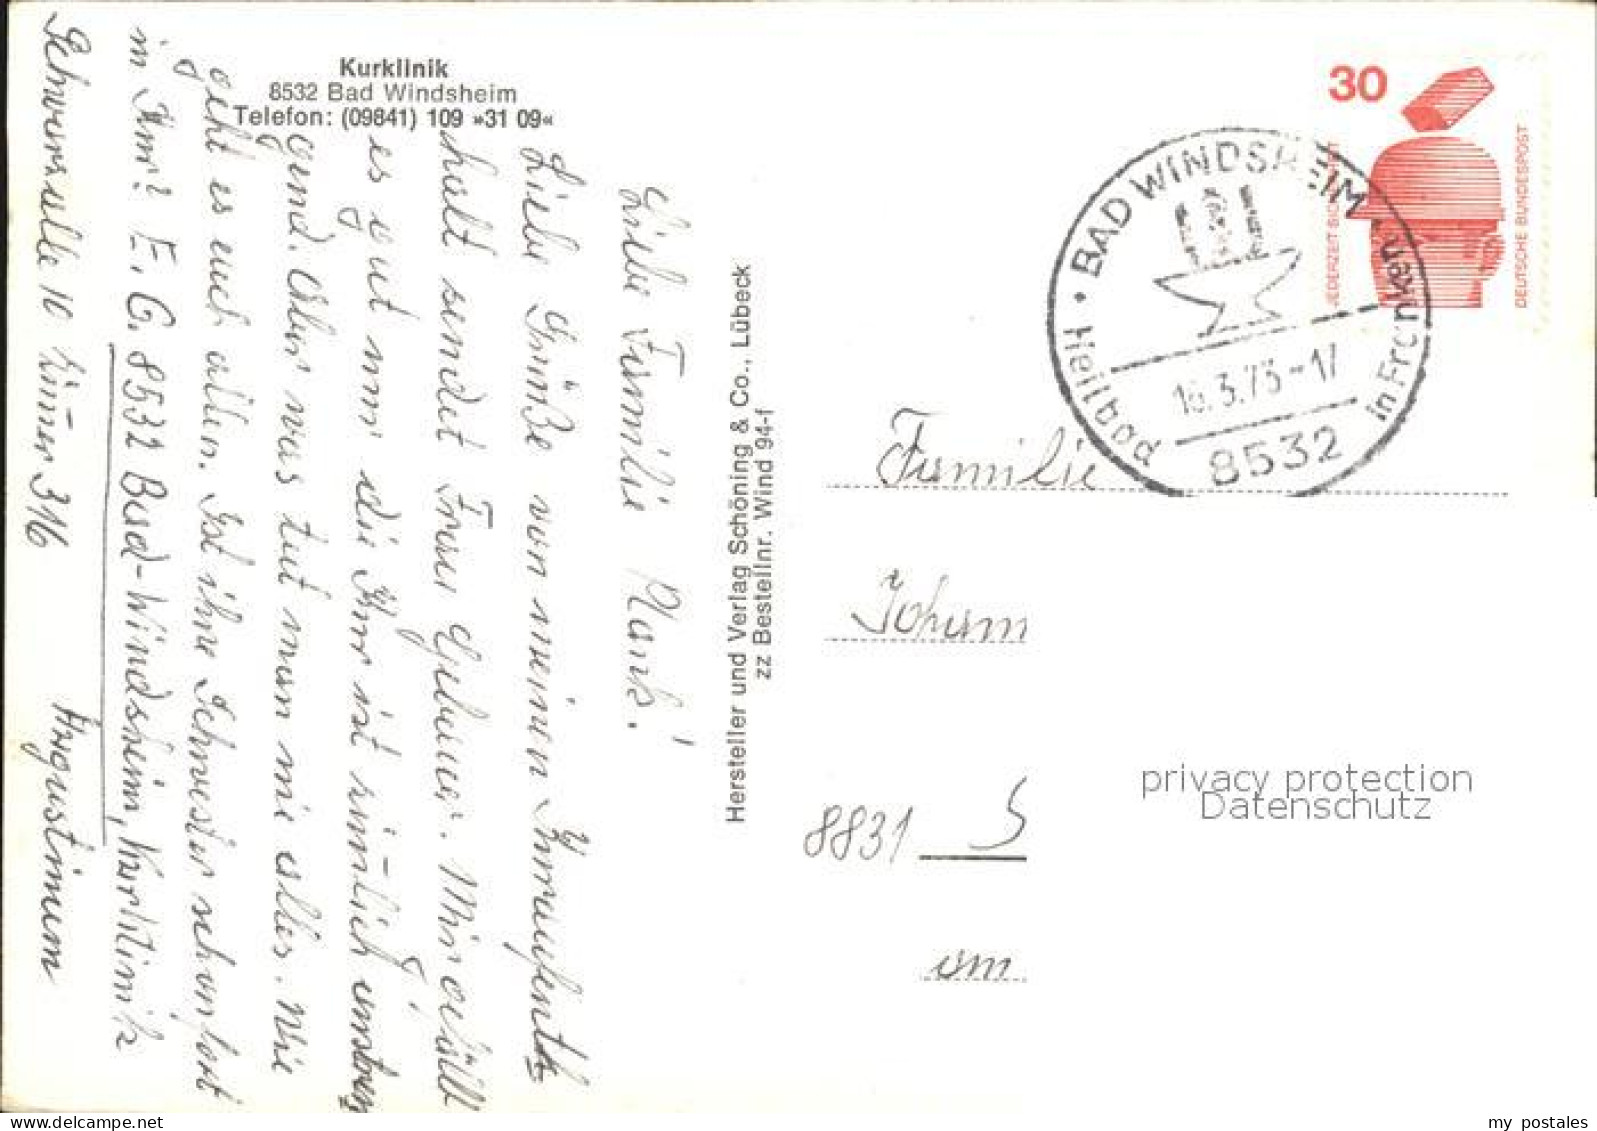 Kurklinik
8532 Bad Windsheim
Telefon: (09841) 109 »31 09«
Liebe Familie Hank!
Liebe Grüße von meinen Kuraufent-
halt sendet Frau Gebauer. Mir gefällt
es gut nur die Kur ist ziemlich anstren-
gend. Aber was tut man nie alles. Wie
geht es euch allen. Ist ihre Schwester schon fort
in Kur? E. G. 8532 Bad-Windsheim, Kurklinik
Schwarzalle 10 Zimmer 316 Augustinum
Hersteller und Verlag Schöning & Co., Lübeck
zz Bestellnr. Wind 94-f
30
JEDERZEIT SICHERHEIT
DEUTSCHE BUNDESPOST
BAD WINDSHEIM
16.3.73-17
8532
Heilbad in Franken
Familie
Johann
8831 S
am
privacy protection
Datenschutz
my postales